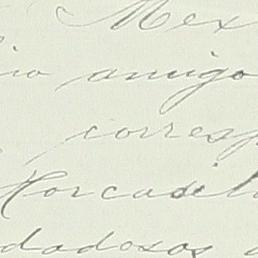 Mex
io amigo
corresp
Horcasil
dadosos